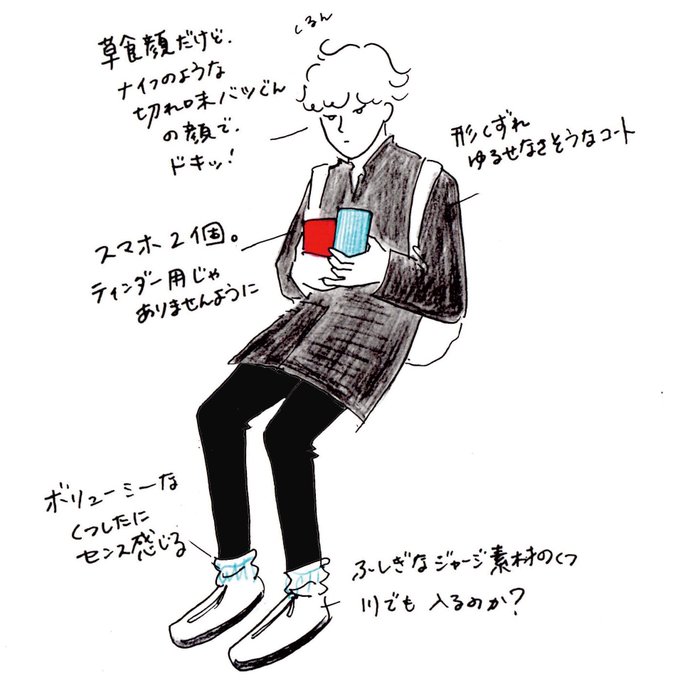 くるん
草食顔だけど、
ナイフのような
切れ味バツぐん
の顔で、
ドキッ!
形くずれ
ゆるせなさそうなコート
スマホ2個。
ティンダー用じゃ
ありませんように
ボリューミーな
くつしたに
センス感じる
ふしぎなジャージ素材のくつ
川でも入るのか?